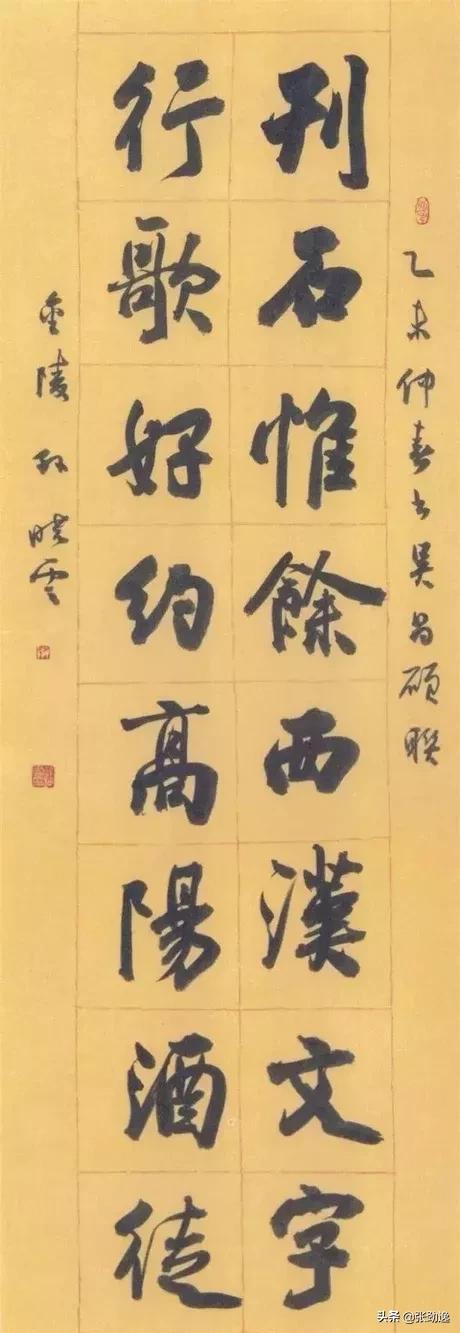 乙未仲春书吴昌硕联
刊石惟餘西漢文字
行歌好約高陽酒徒
金陵孙晓云
头条@张劲逸